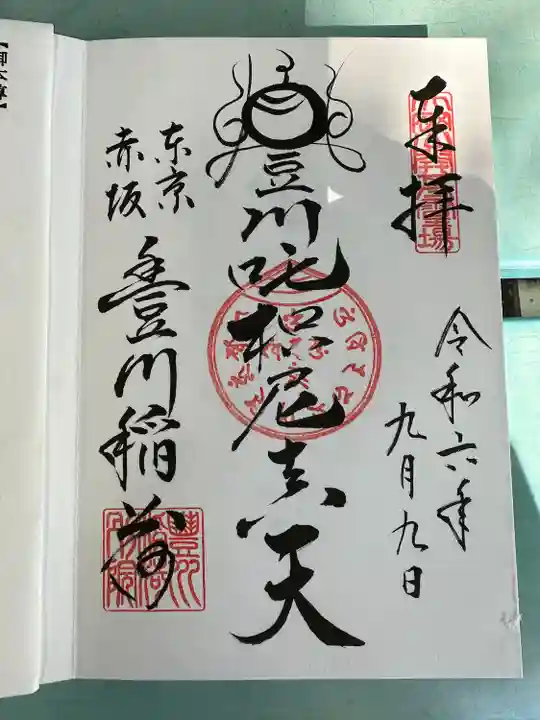 奉拝
令和六年
九月九日
豊川吒枳尼真天
東京
赤坂
豊川稲荷
【御本尊】